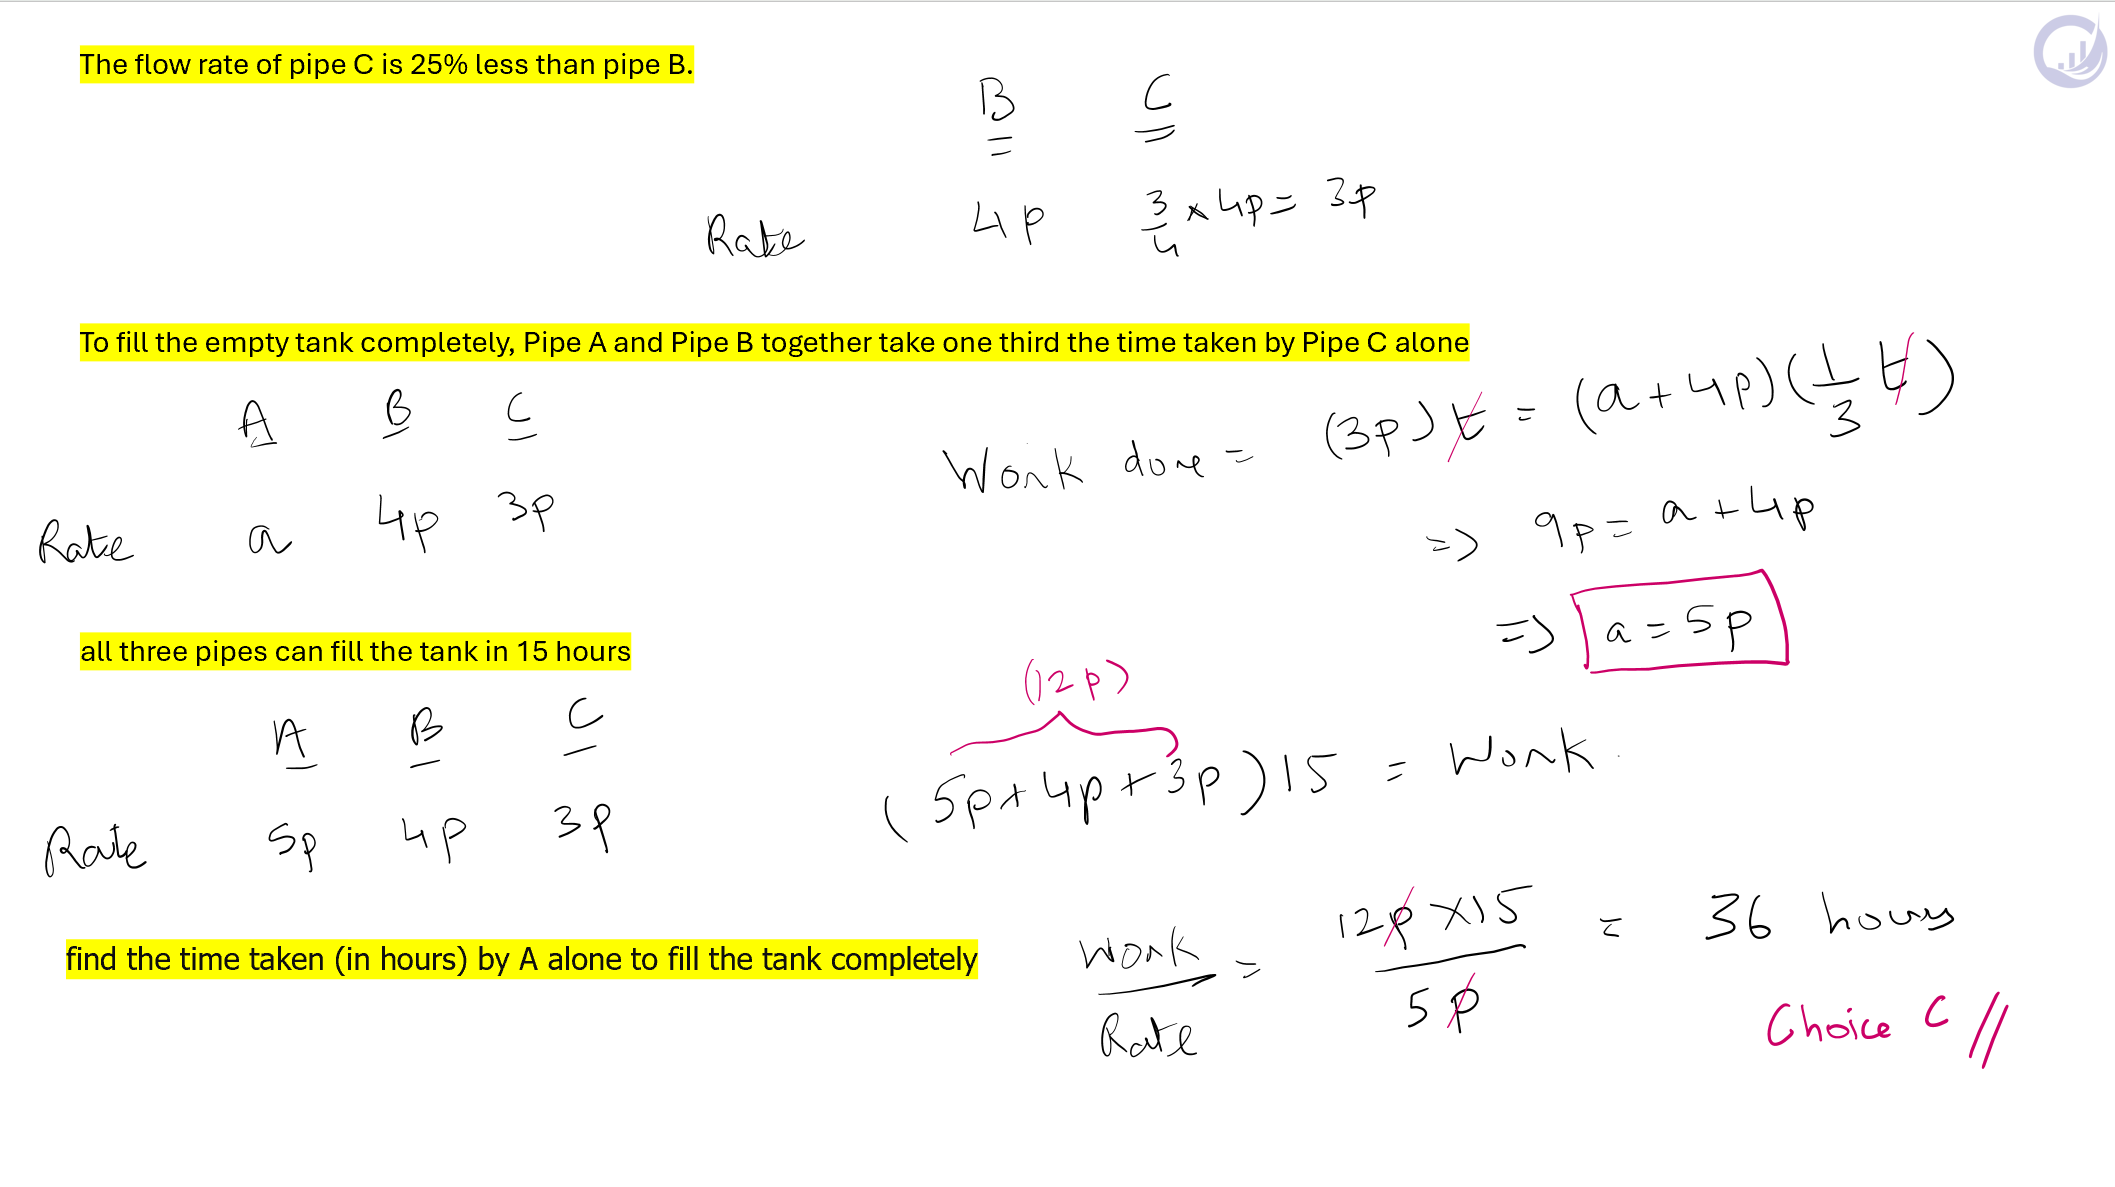 The flow rate of pipe C is 25% less than pipe B.
B C
Rate 4p 3/4 × 4p = 3p
To fill the empty tank completely, Pipe A and Pipe B together take one third the time taken by Pipe C alone
A B C
Rate a 4p 3p
Work done = (3p) t = (a + 4p) (1/3 t)
=> 9p = a + 4p
=> a = 5p
all three pipes can fill the tank in 15 hours
A B C
Rate 5p 4p 3p
(12p)
(5p + 4p + 3p) 15 = Work
find the time taken (in hours) by A alone to fill the tank completely
Work/Rate = 12p × 15 / 5p = 36 hours
Choice C //